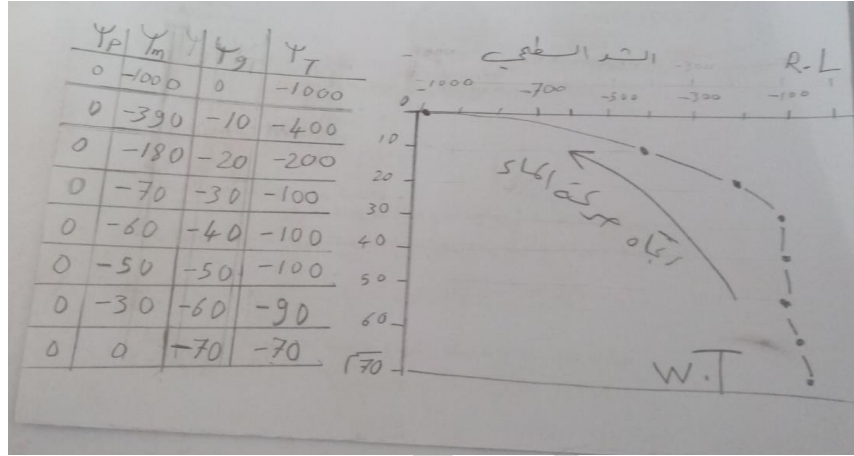 Ψp | Ψm | Ψg | ΨT
0 | -1000 | 0 | -1000
0 | -390 | -10 | -400
0 | -180 | -20 | -200
0 | -70 | -30 | -100
0 | -60 | -40 | -100
0 | -50 | -50 | -100
0 | -30 | -60 | -90
0 | 0 | -70 | -70
الشد السطحي
R.L
-1000 -700 -500 -300 -100
0
10
20
30
40
50
60
70
اتجاه حركة الماء
W.T